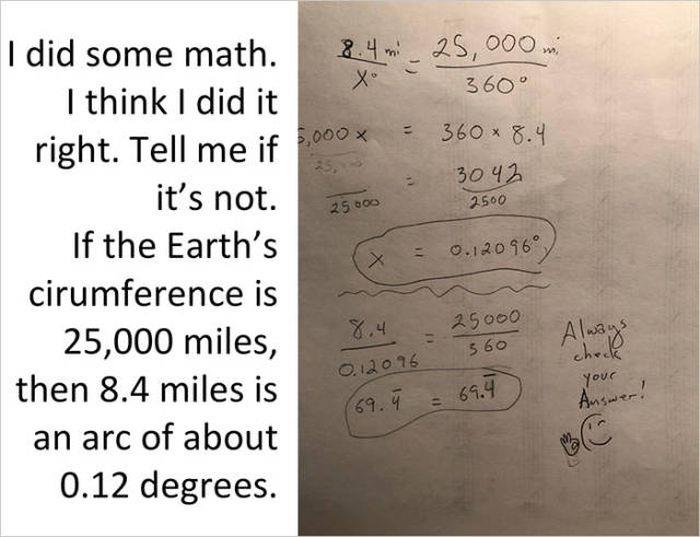 I did some math.
I think I did it
right. Tell me if
it's not.
If the Earth's
cirumference is
25,000 miles,
then 8.4 miles is
an arc of about
0.12 degrees.
8.4 mi = 25,000 mi
X° 360°
5,000 x = 360 × 8.4
= 3042
25000 2500
x = 0.12096°
8.4 = 25000
0.12096 360
69.4̅ = 69.4̅
Always
check
your
Answer!